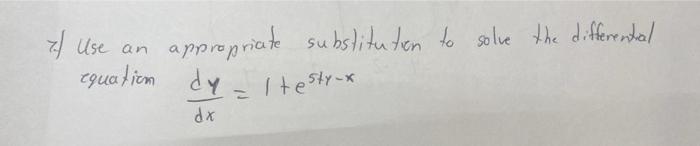 7) Use an appropriate substitution to solve the differential
equation dy/dx = 1+e^{5+y-x}